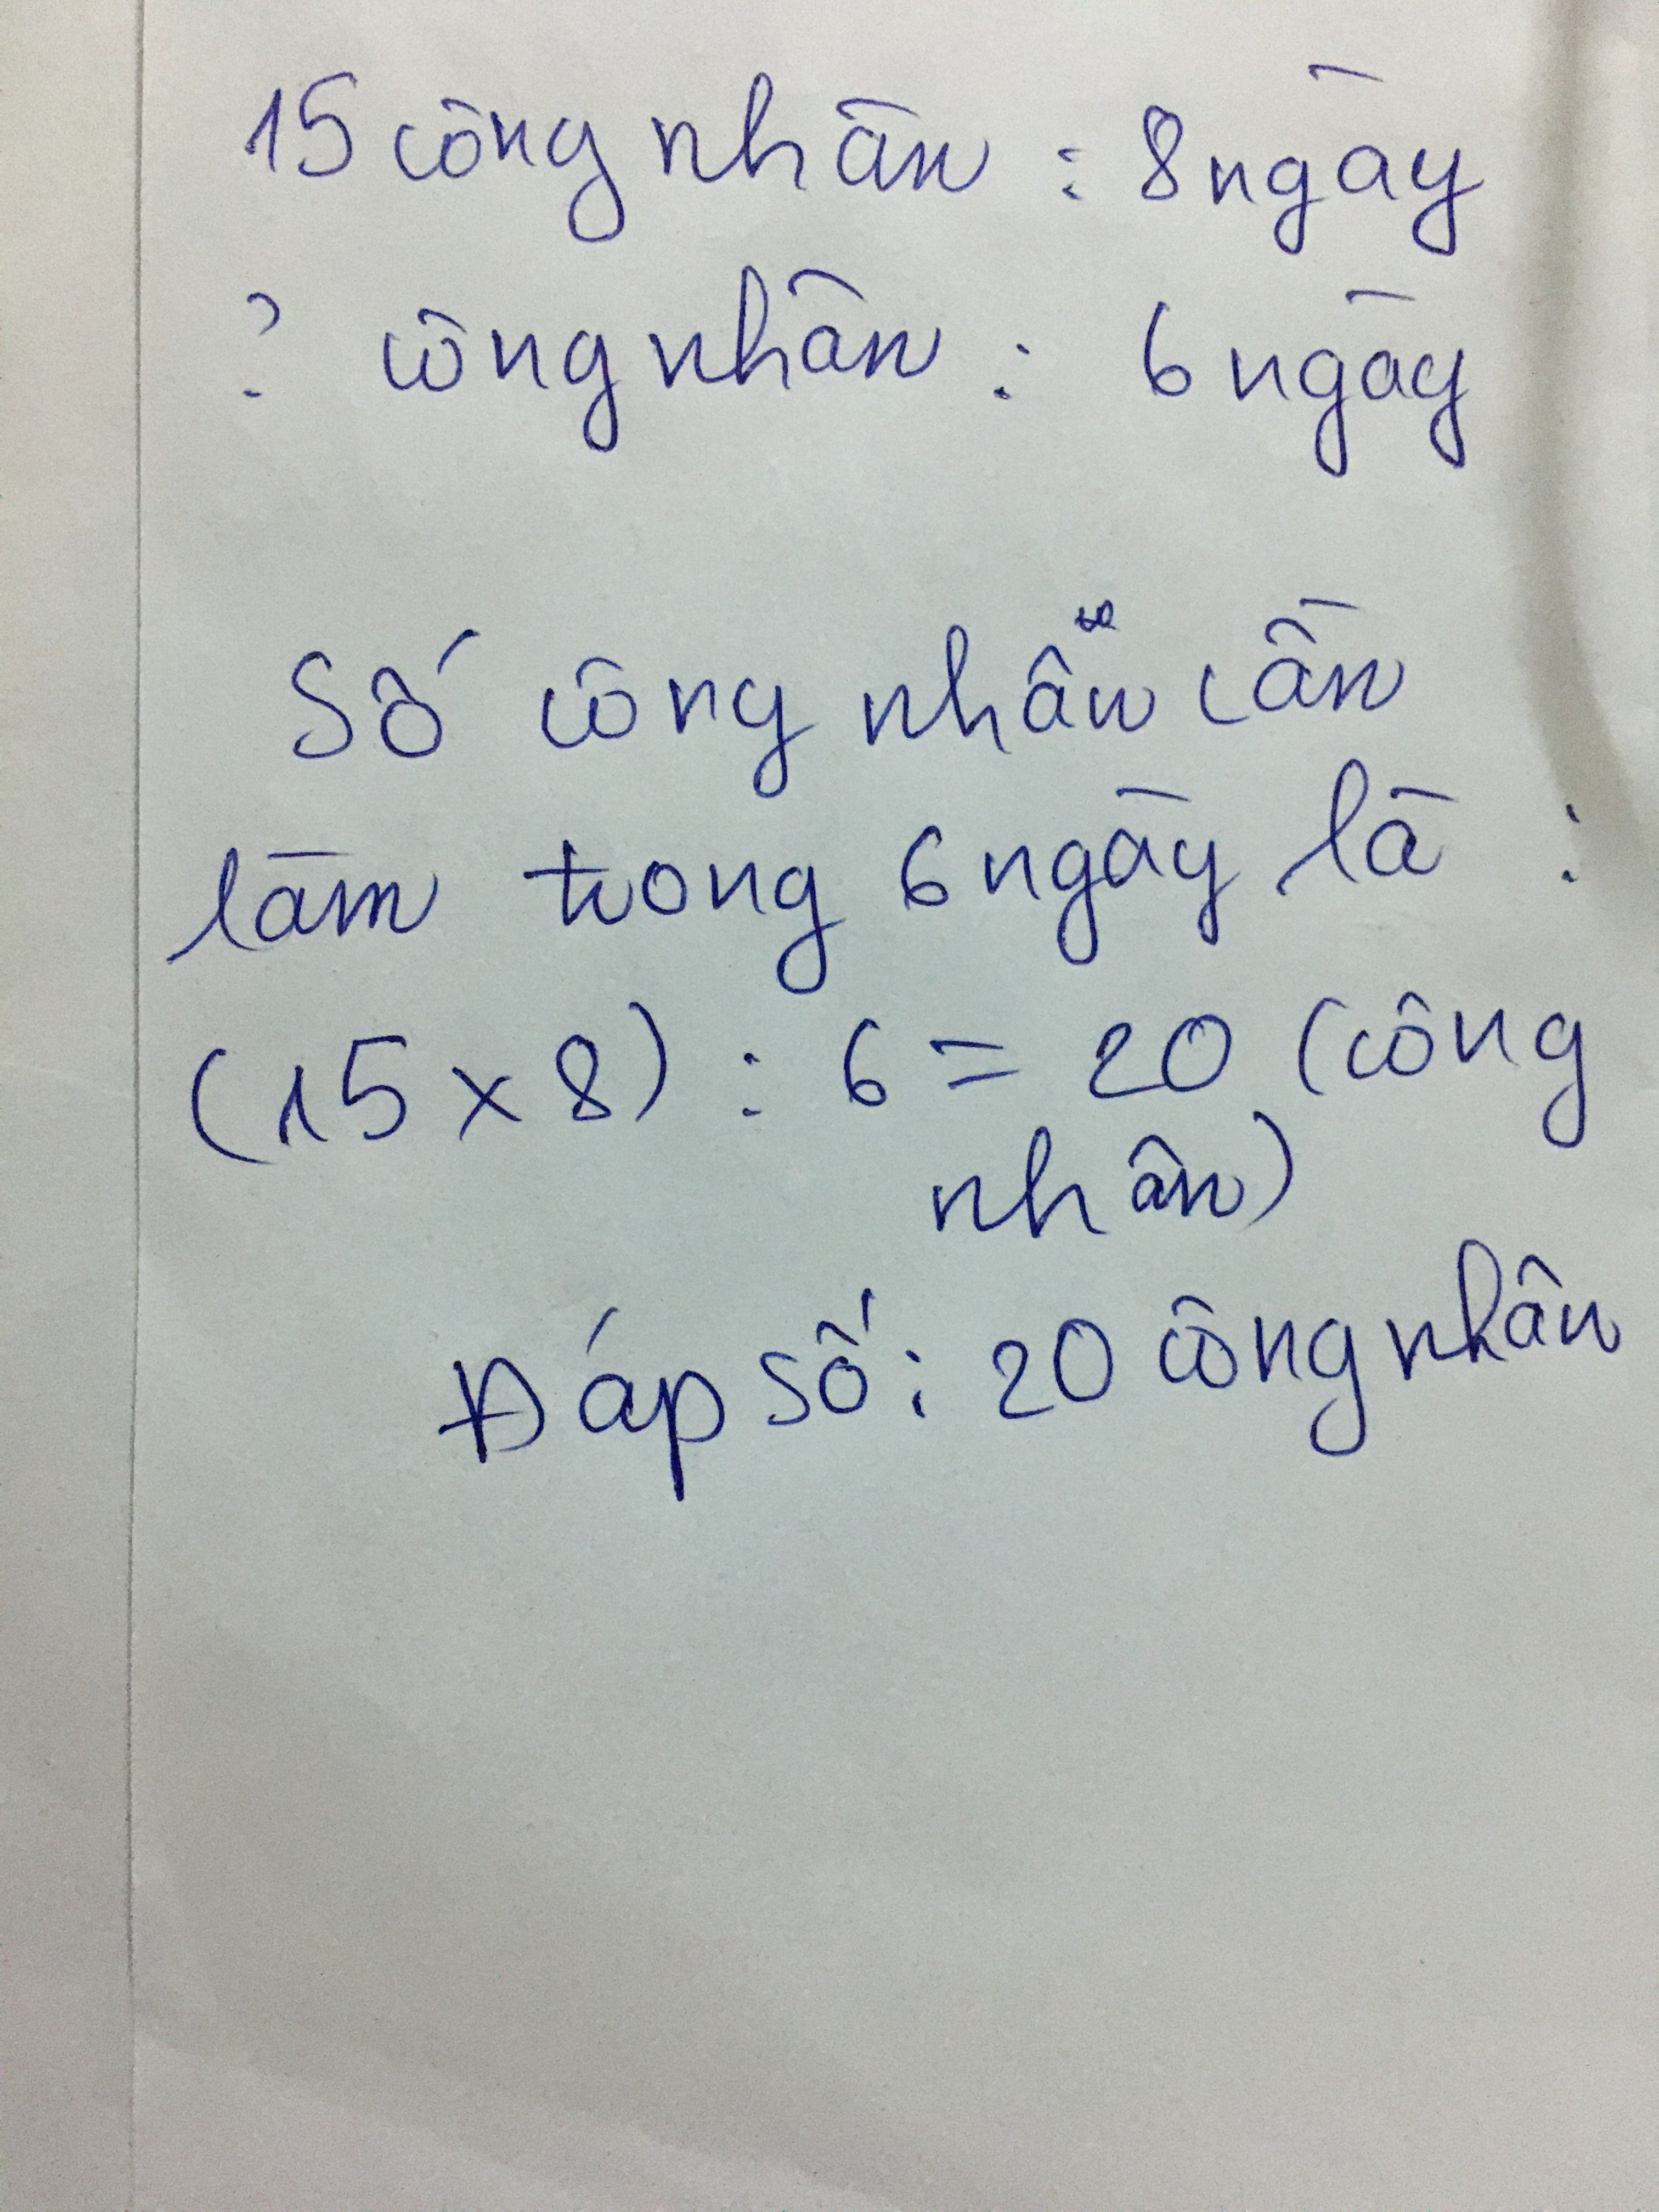 15 công nhân : 8 ngày
? công nhân : 6 ngày
Số công nhân cần
làm trong 6 ngày là :
(15 x 8) : 6 = 20 (công
nhân)
Đáp số : 20 công nhân